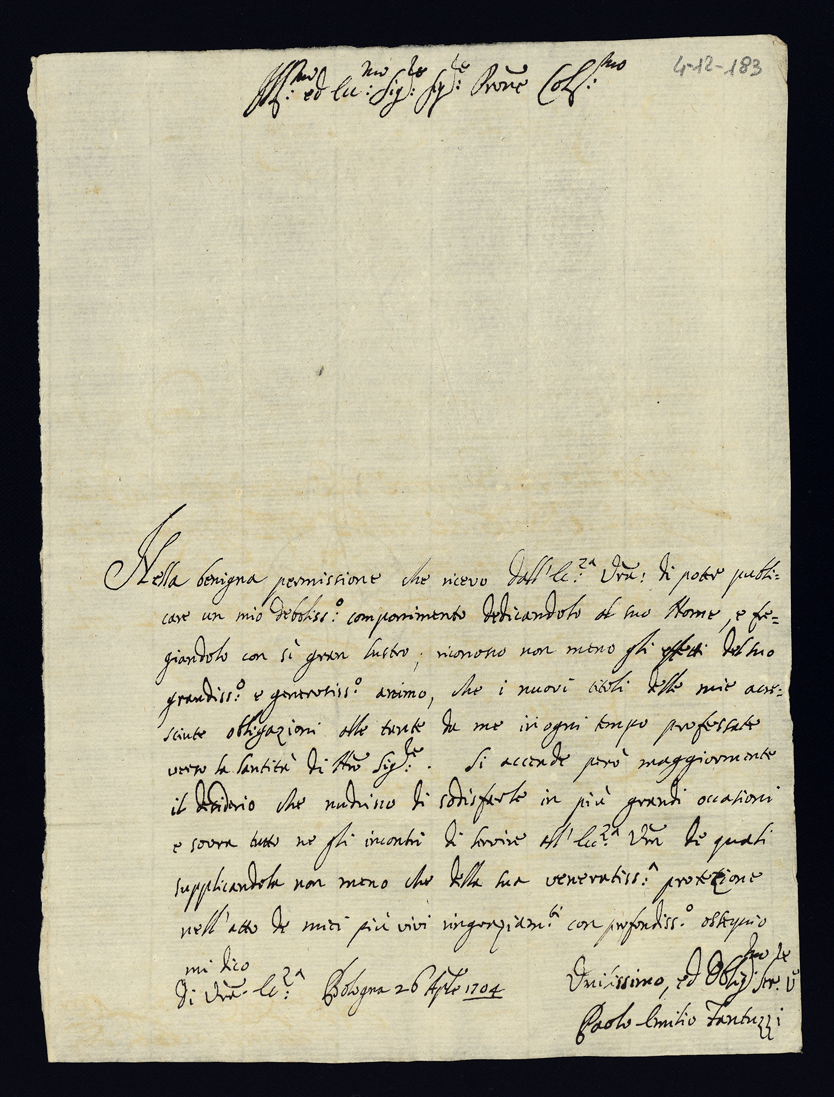 4-12-183
Ill:mo ed Ecc:mo Sig:re Sig:re Prõne Col:mo
Nella benigna permissione che ricevo dall'Ec:za Vrã: di poter publi=
care un mio deboliss:o componimento dedicandolo al suo Nome, e fre=
giandolo con sì gran lustro; riconosco non meno gli effetti del suo
grandiss:o e generosiss:o animo, che i nuovi titoli delle mie accre=
sciute obligazioni alle tante da me in ogni tempo professate
verso la Santità di Nrõ Sig:re. Si accende però maggiormente
il desiderio che nudrisco di sodisfarle in più grandi occasioni
e sovra tutto ne gli incontri di servire all'Ecc:za Vrã de quali
supplicandola non meno che della sua veneratiss:a protezione
nell'atto de miei più vivi ringraziam:ti con profondiss:o ossequio
mi dico
Di Vrã Ec:za Bologna 26 Aple 1704
Umilissimo, ed Oblig:mo Ser:re V
Paolo Emilio Fantuzzi